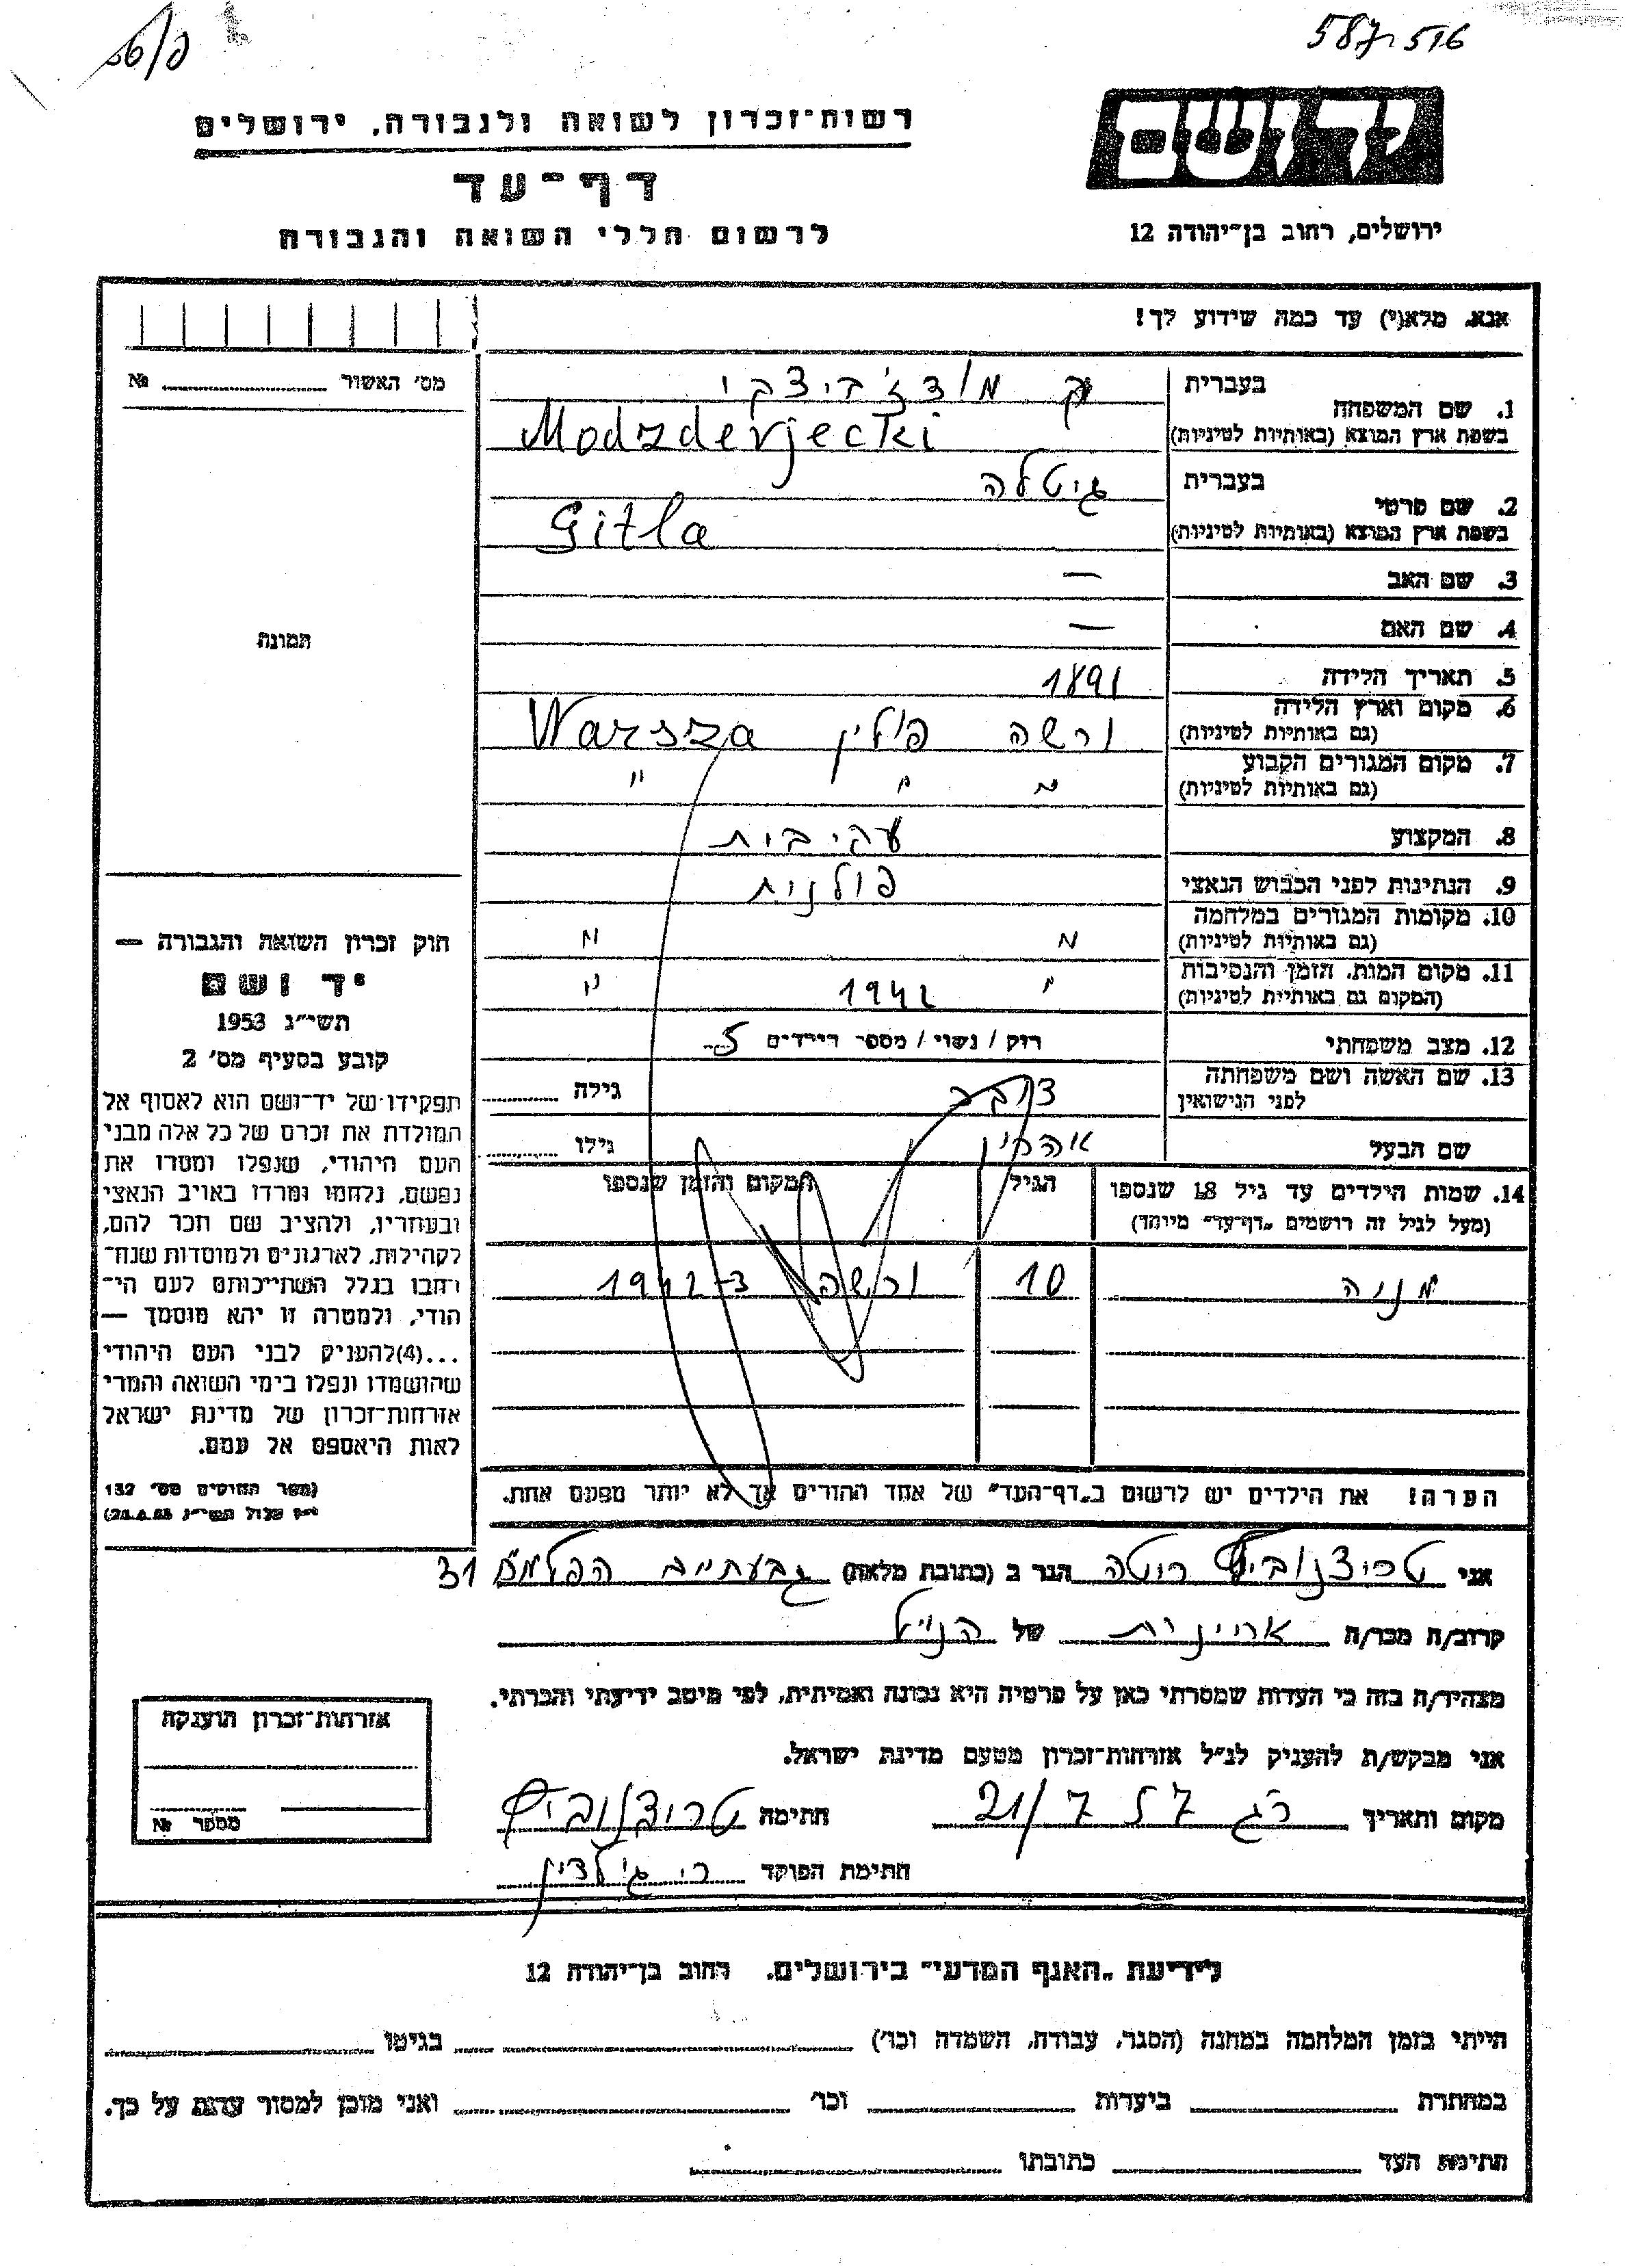 587516
יד ושם
רשות־זכרון לשואה ולגבורה, ירושלים
דף־עד
לרשום חללי השואה והגבורה
ירושלים, רחוב בן־יהודה 12
אנא, מלא(י) עד כמה שידוע לך!
מס׳ האשור № 
1. שם המשפחה
בעברית
בשפת ארץ המוצא (באותיות לטיניות) Modzderjecki
2. שם פרטי
בעברית גיטלה
בשפת ארץ המוצא (באותיות לטיניות) Gitla
3. שם האב —
4. שם האם —
5. תאריך הלידה 1891
6. מקום וארץ הלידה
(גם באותיות לטיניות) ורשה פולין Warsza
7. מקום המגורים הקבוע
(גם באותיות לטיניות) " " "
8. המקצוע עקרבית
9. הנתינות לפני הכבוש הנאצי פולנית
10. מקומות המגורים במלחמה
(גם באותיות לטיניות) " "
11. מקום המות, הזמן והנסיבות
(המקום גם באותיות לטיניות) " 1942 "
12. מצב משפחתי רוק / נשוי / מספר הילדים 5
13. שם האשה ושם משפחתה
לפני הנישואין גילה
שם הבעל אהרון גילו
14. שמות הילדים עד גיל 18 שנספו
(מעל לגיל זה רושמים „דף־עד״ מיוחד)
הגיל
המקום והזמן שנספו
מניה 10 ורשה ב־1942
הערה! את הילדים יש לרשום ב„דף־העד״ של אחד ההורים אך לא יותר מפעם אחת.
תמונה
חוק זכרון השואה והגבורה —
יד ושם
תשי״ג 1953
קובע בסעיף מס׳ 2
תפקידו של יד־ושם הוא לאסוף אל
המולדת את זכרם של כל אלה מבני
העם היהודי, שנפלו ומסרו את
נפשם, נלחמו ומרדו באויב הנאצי
ובעוזריו, ולהציב שם וזכר להם,
לקהילות, לארגונים ולמוסדות שנח־
רבו בגלל השתייכותם לעם הי־
הודי, ולמטרה זו יהא מוסמך —
...(4) להעניק לבני העם היהודי
שהושמדו ונפלו בימי השואה והמרי
אזרחות־זכרון של מדינת ישראל
לאות היאספם אל עמם.
(ספר החוקים מס׳ 132
אני רוטה הגר ב (כתובת מלאה) גבעתיים הפלמ״ח 31
קרוב/ה מכר/ה של הנ״ל
מצהיר/ה בזה כי העדות שמסרתי כאן על פרטיה היא נכונה ואמיתית, לפי מיטב ידיעתי והכרתי.
אני מבקש/ת להעניק לנ״ל אזרחות־זכרון מטעם מדינת ישראל.
מקום ותאריך רג 21/7 57 חתימה
חתימת הפוקד
אזרחות־זכרון הוענקה
מספר №
לידיעת „האגף המדעי״ בירושלים, רחוב בן־יהודה 12
הייתי בזמן המלחמה במחנה (הסגר, עבודה, השמדה וכו׳) בגיטו
במחתרת ביערות וכו׳ ואני מוכן למסור עדות על כך.
חתימת העד כתובתו